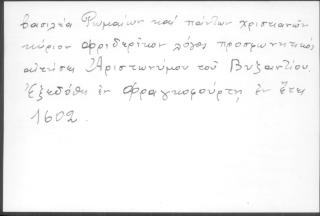 βασιλέα Ῥωμαίων καί πάντων χριστιανῶν
κύριον Φριδερῖκον λόγος προσφωνητικός
Ἀριστωνύμου τοῦ Βυζαντίου.
Ἐξεδόθη ἐν Φραγκφούρτῃ ἐν ἔτει
1602.